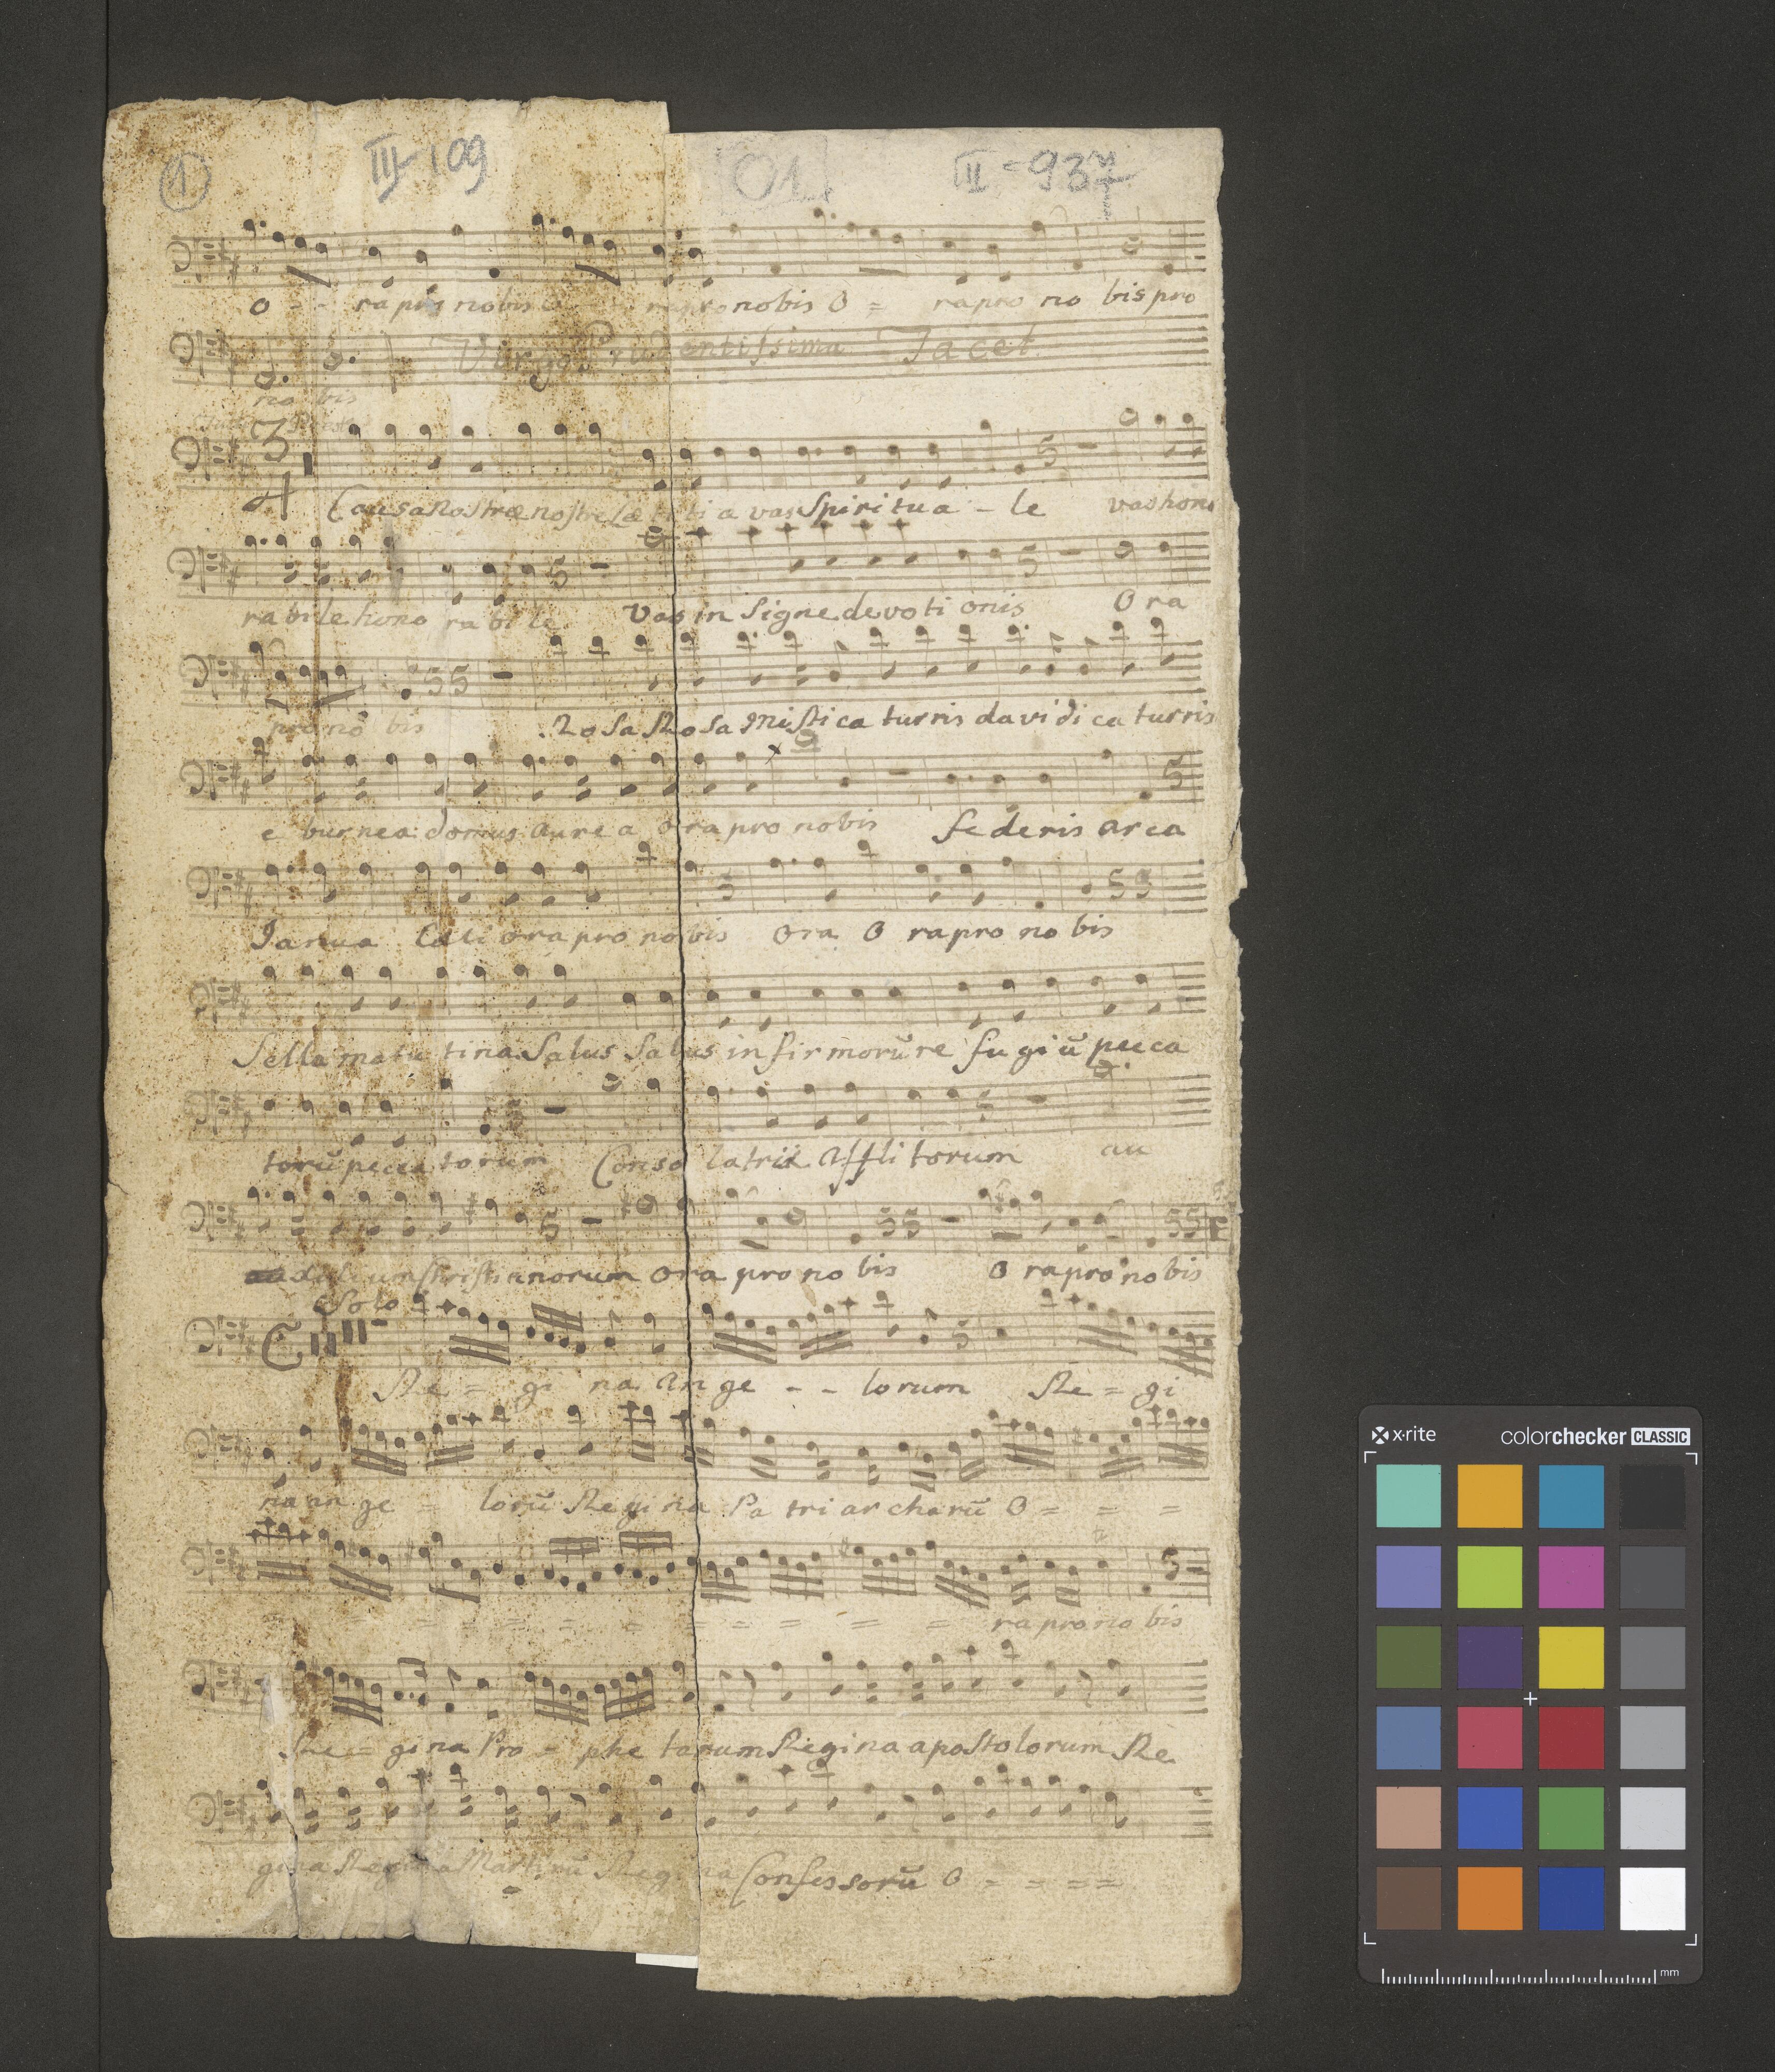 1 III-109 01 II-937
O - - ra pro nobis O ra pro nobis O = ra pro no bis pro
Virgo Prudentissima Tacet
no bis
3
4
Causa Nostræ nostre Læ ti ti a vas Spiritua - le vas hono
ra bi le hono ra bi le Vas in Signe devoti onis O ra
pro no bis Rosa Rosa Mistica turris davidi ca turris
e burnea domus aure a o ra pro nobis federis arca
Janua Cæli ora pro no bis Ora O ra pro no bis
Sella matu tina Salus Salus in firmorū re fu giū pecca
torū pecca torum Conso latrix Affli torum au
xiliumchristianorum Ora pro no bis O ra pro no bis
Solo
Re = gi na An ge - - lorum Re = gi
na an ge = lorū Regina Patri ar charū O = = =
= = = = = = = = = ra pro no bis
Re = gi na Pro = phe tarum Regina apostolorum Re
gina Regina Martirū Regina Confessorū O = = = =
x·rite colorchecker CLASSIC
mm